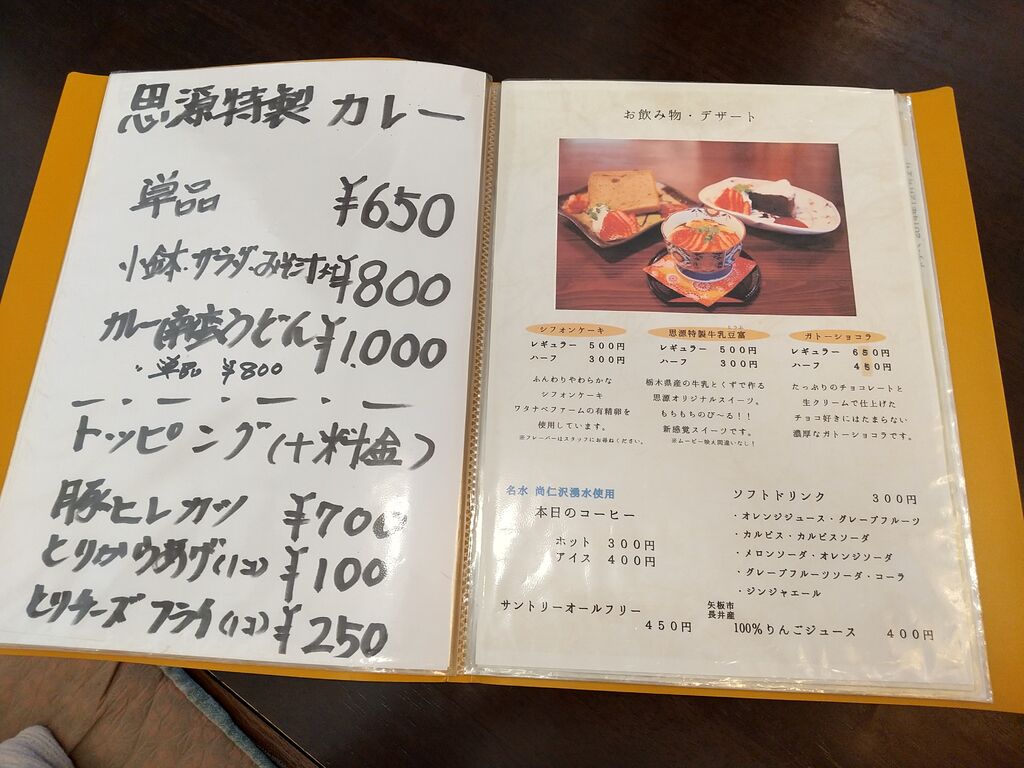 思源特製 カレー
単品 ¥650
小鉢・サラダ・みそ汁付 ¥800
カレー南蛮うどん ¥1.000
単品 ¥800
トッピング(+料金)
豚ヒレカツ ¥700
とりからあげ(1コ) ¥100
とりチーズフライ(1コ) ¥250
お飲み物・デザート
シフォンケーキ
レギュラー 500円
ハーフ 300円
ふんわりやわらかな
シフォンケーキ
ワタナベファームの有精卵を
使用しています。
※フレーバーはスタッフにお尋ねください。
とうふ
思源特製牛乳豆富
レギュラー 500円
ハーフ 300円
栃木県産の牛乳とくずで作る
思源オリジナルスイーツ。
もちもちのび〜る!!
新感覚スイーツです。
※ムービー映え間違いなし!
ガトーショコラ
レギュラー 650円
ハーフ 450円
たっぷりのチョコレートと
生クリームで仕上げた
チョコ好きにはたまらない
濃厚なガトーショコラです。
名水 尚仁沢湧水使用
本日のコーヒー
ホット 300円
アイス 400円
サントリーオールフリー
450円
ソフトドリンク 300円
・オレンジジュース・グレープフルーツ
・カルピス・カルピスソーダ
・メロンソーダ・オレンジソーダ
・グレープフルーツソーダ・コーラ
・ジンジャエール
矢板市
長井産
100%りんごジュース 400円